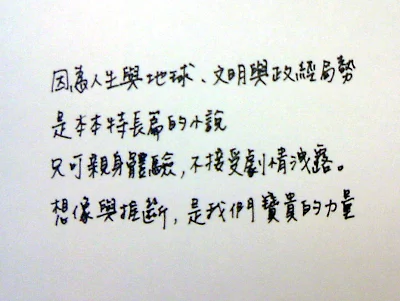 因為人生與地球、文明與政經局勢
是本本特長篇的小說
只可親身體驗,不接受劇情洩露。
想像與推斷,是我們寶貴的力量